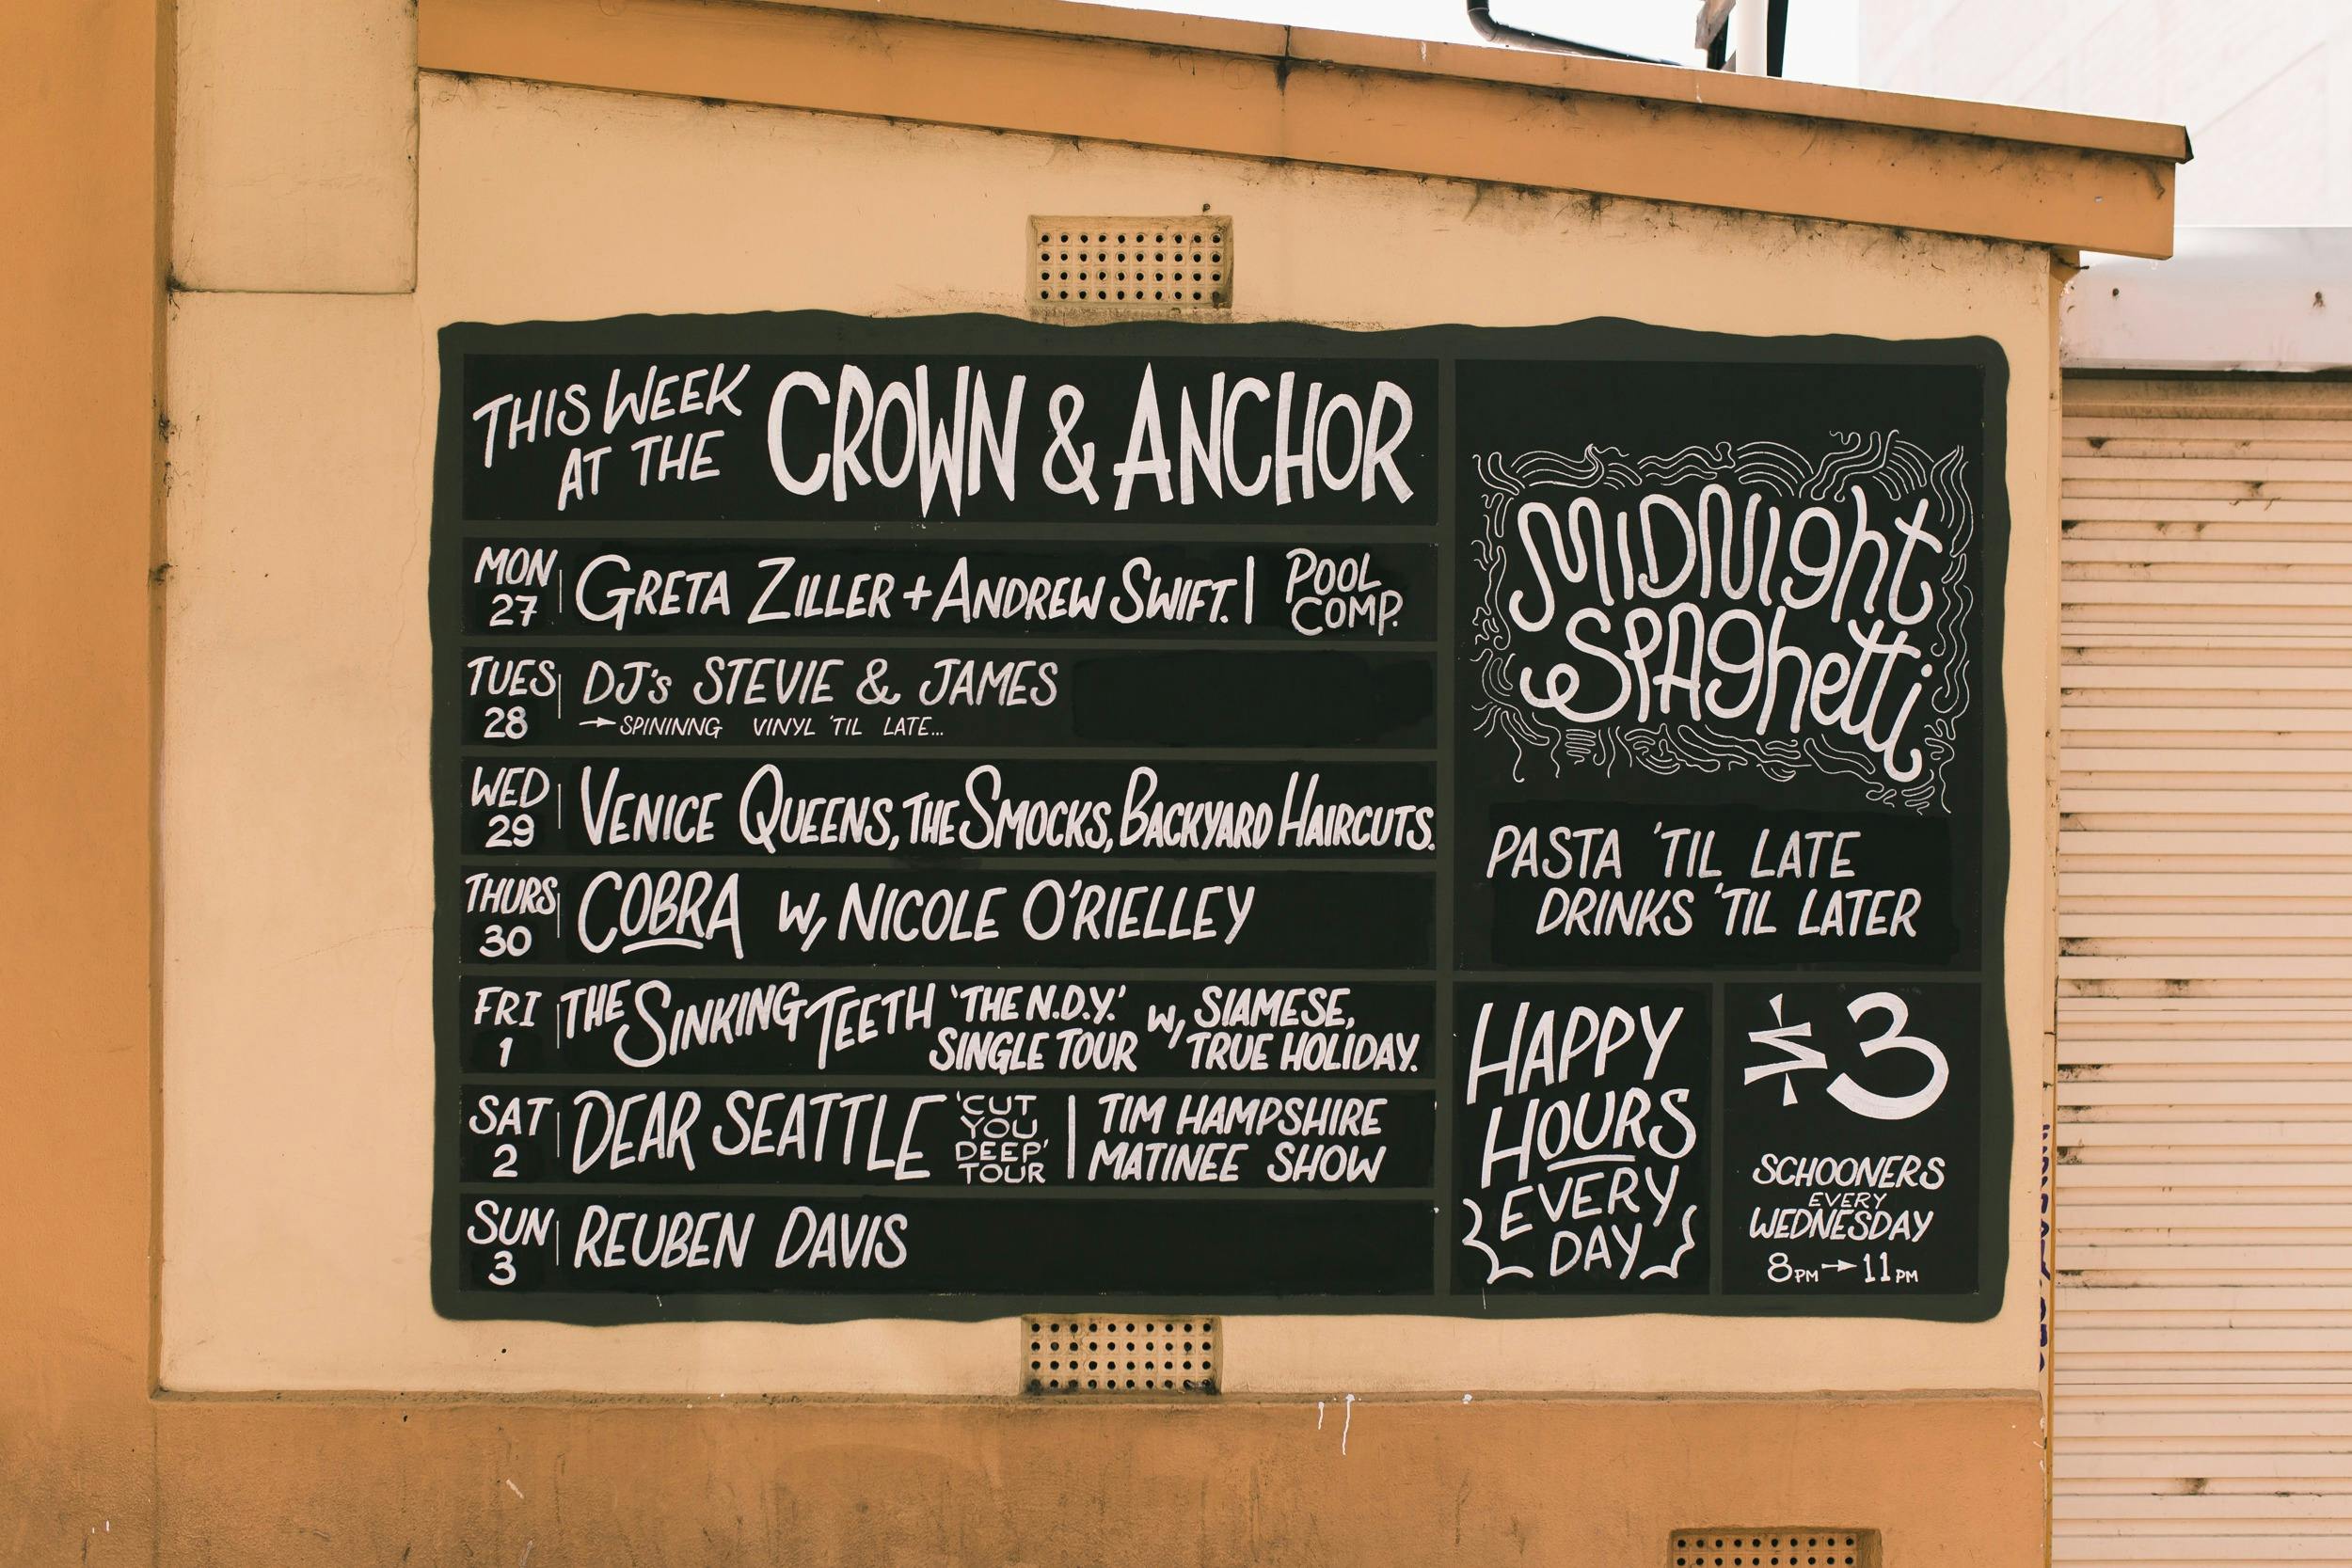 THIS WEEK
AT THE
CROWN & ANCHOR
MON
27
GRETA ZILLER + ANDREW SWIFT. | POOL
COMP.
TUES
28
DJ's STEVIE & JAMES
→ SPININNG VINYL 'TIL LATE...
WED
29
VENICE QUEENS, THE SMOCKS, BACKYARD HAIRCUTS.
THURS
30
COBRA W/ NICOLE O'RIELLEY
FRI
1
THE SINKING TEETH
'THE N.D.Y.'
SINGLE TOUR
W/ SIAMESE,
TRUE HOLIDAY.
SAT
2
DEAR SEATTLE
'CUT
YOU
DEEP'
TOUR
TIM HAMPSHIRE
MATINEE SHOW
SUN
3
REUBEN DAVIS
MIDNIGht
SPAGhetti
PASTA 'TIL LATE
DRINKS 'TIL LATER
HAPPY
HOURS
EVERY
DAY
$3
SCHOONERS
EVERY
WEDNESDAY
8PM → 11PM